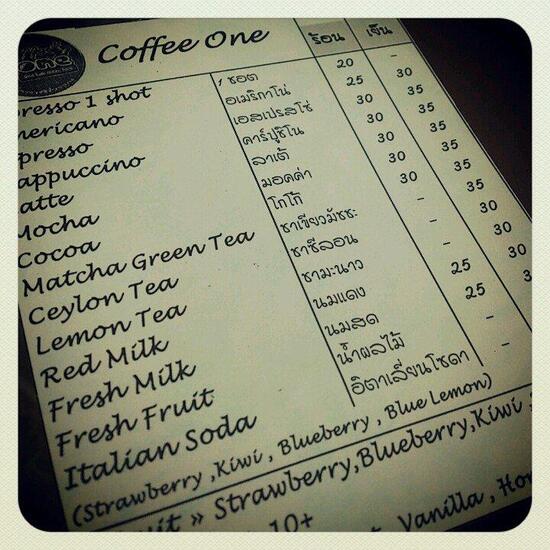 one
Coffee One ร้อน เย็น
presso 1 shot 1 ชอต 20 -
mericano อเมริกาโน่ 25 30
presso เอสเปรสโซ่ 30 35
appuccino คาร์ปูชิโน 30 35
atte ลาเต้ 30 35
Mocha มอคค่า 30 35
Cocoa โกโก้ 30 35
Matcha Green Tea ชาเขียวมัชชะ - 35
Ceylon Tea ชาซีลอน - 30
Lemon Tea ชามะนาว - 30
Red Milk นมแดง 25 30
Fresh Milk นมสด 25 3
Fresh Fruit น้ำผลไม้ -
Italian Soda อิตาเลี่ยนโซดา -
(Strawberry ,Kiwi , Blueberry , Blue Lemon)
uit » Strawberry,Blueberry,Kiwi ,
10+
Vanilla , Hon